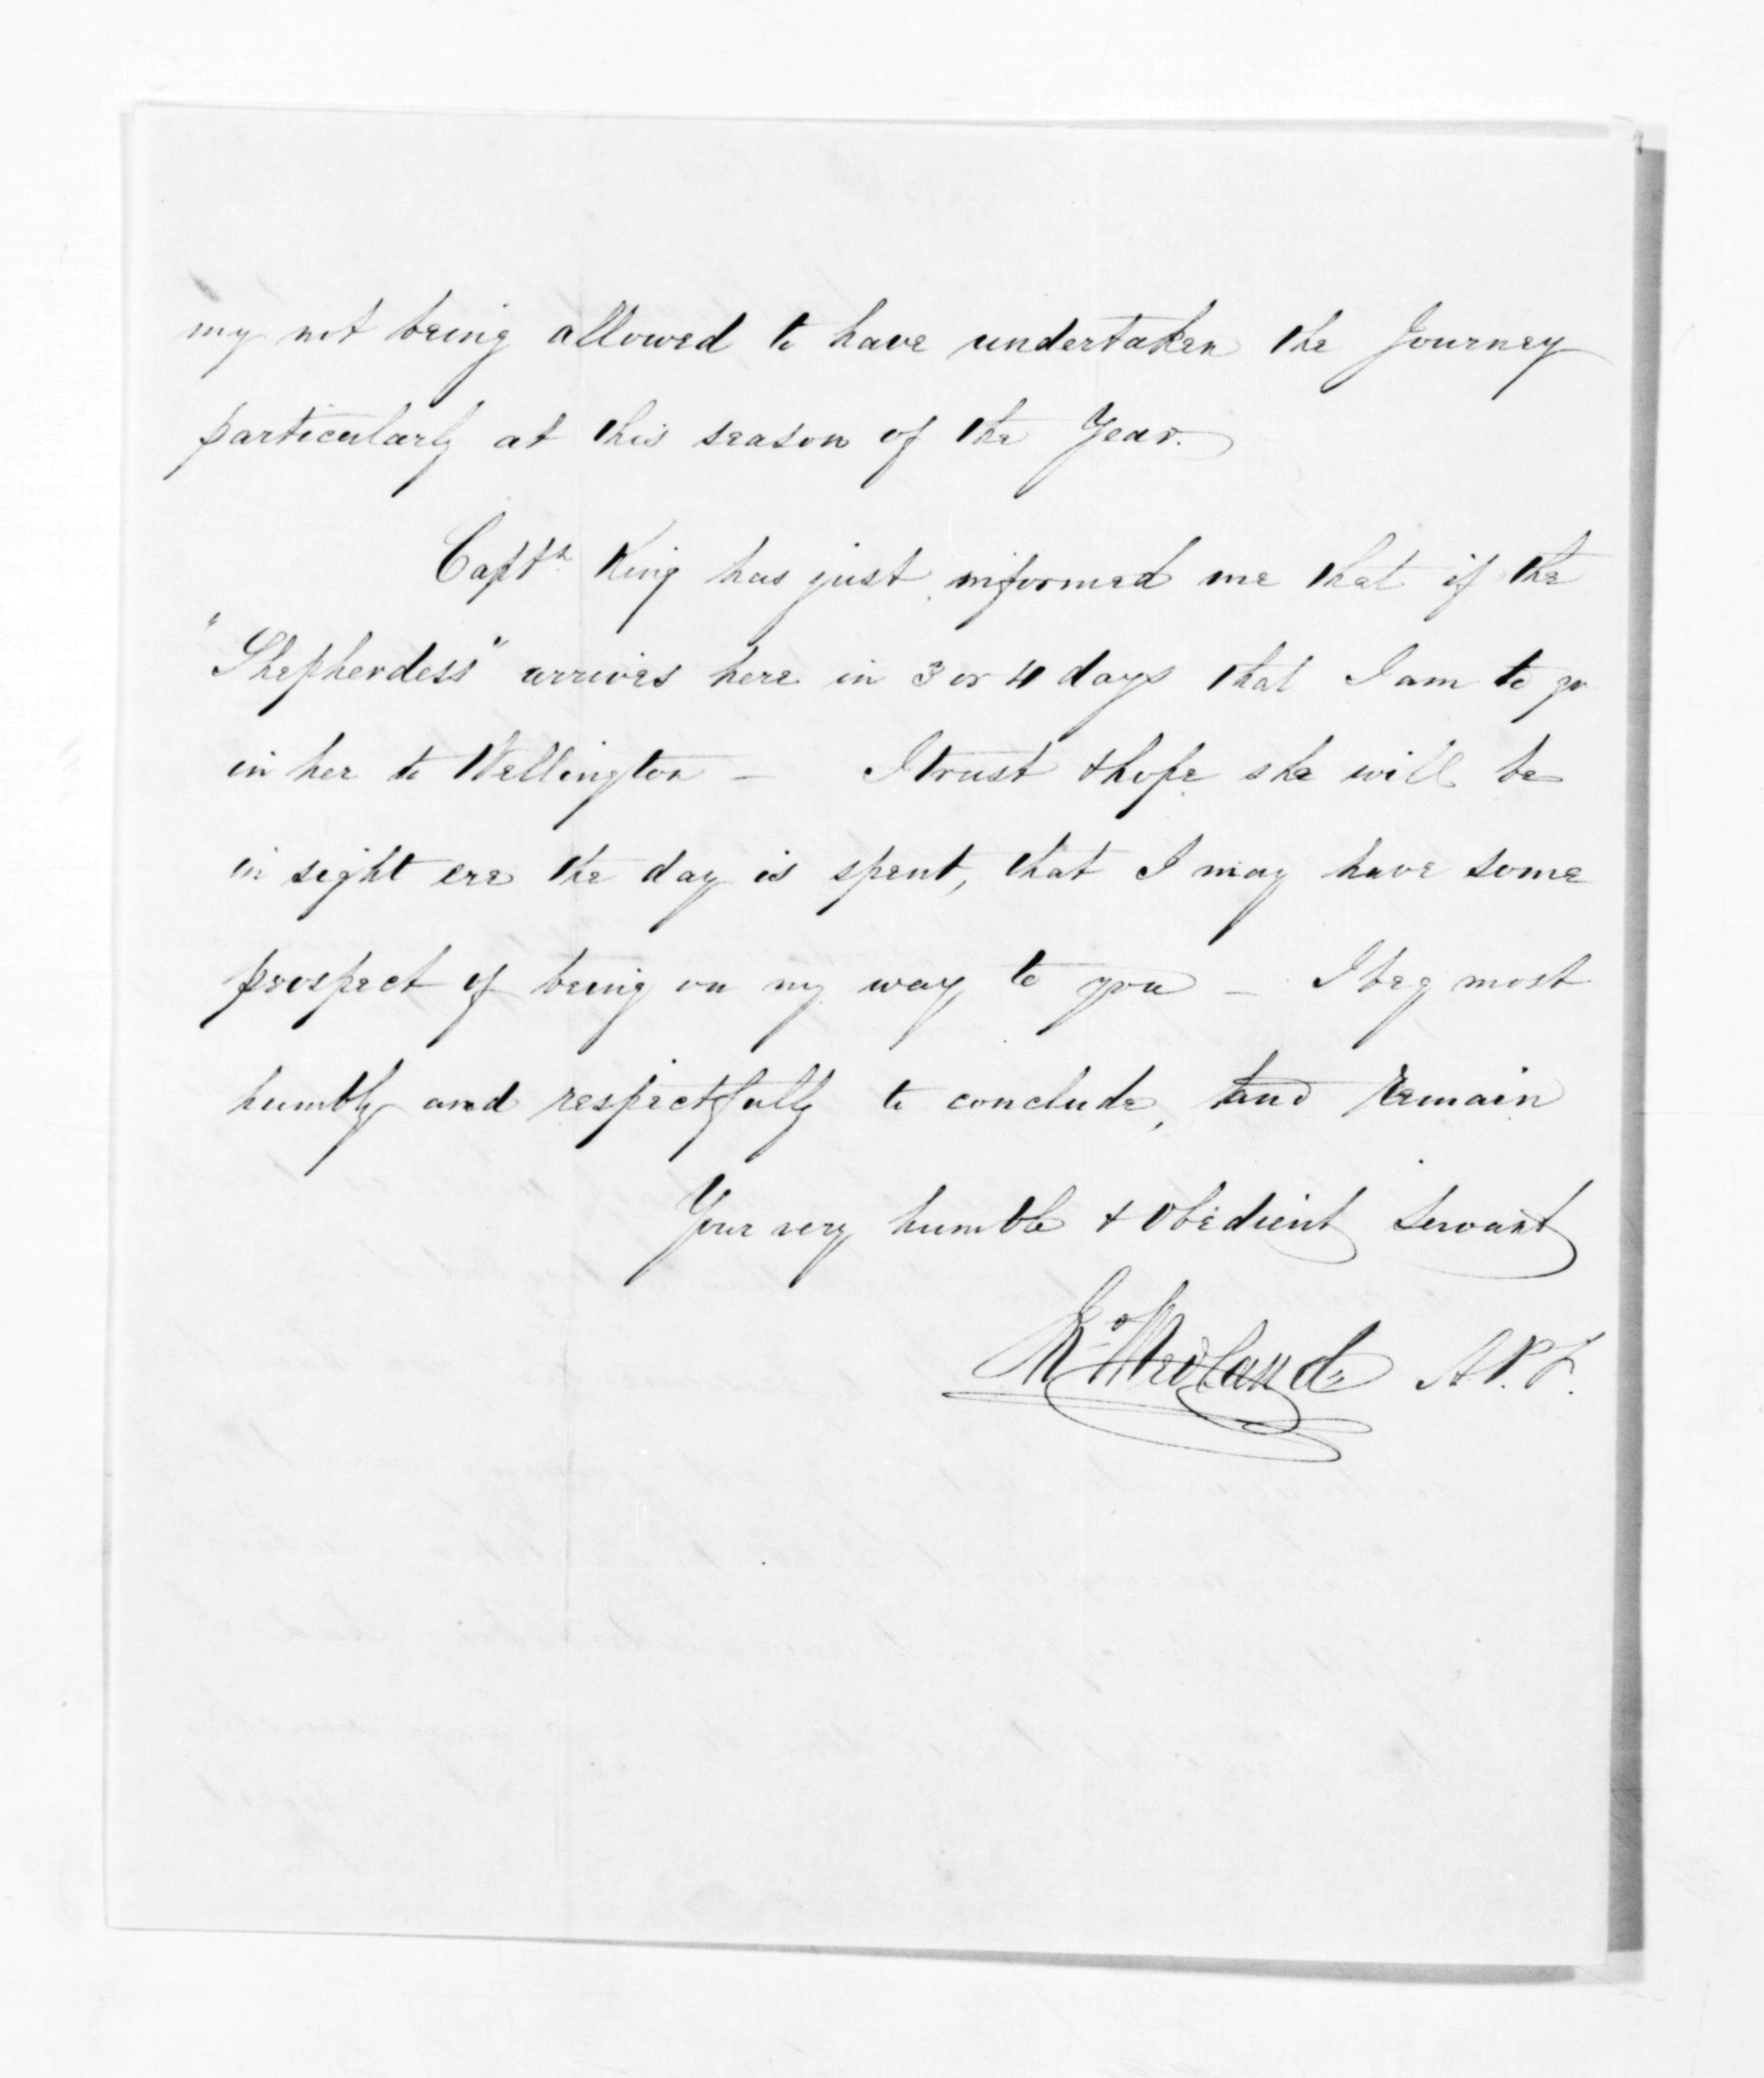 my not being allowed to have undertaken the Journey
particularly at this season of the Year.
Captn King has just informed me that if the
"Shepherdess" arrives here in 3 or 4 days that I am to go
in her to Wellington –  I trust & hope she will be
in sight ere the day is spent, that I may have some
prospect of being on my way to you – I beg most
humbly and respectfully to conclude, and remain
Your very humble & obedient Servant
A.P.F.